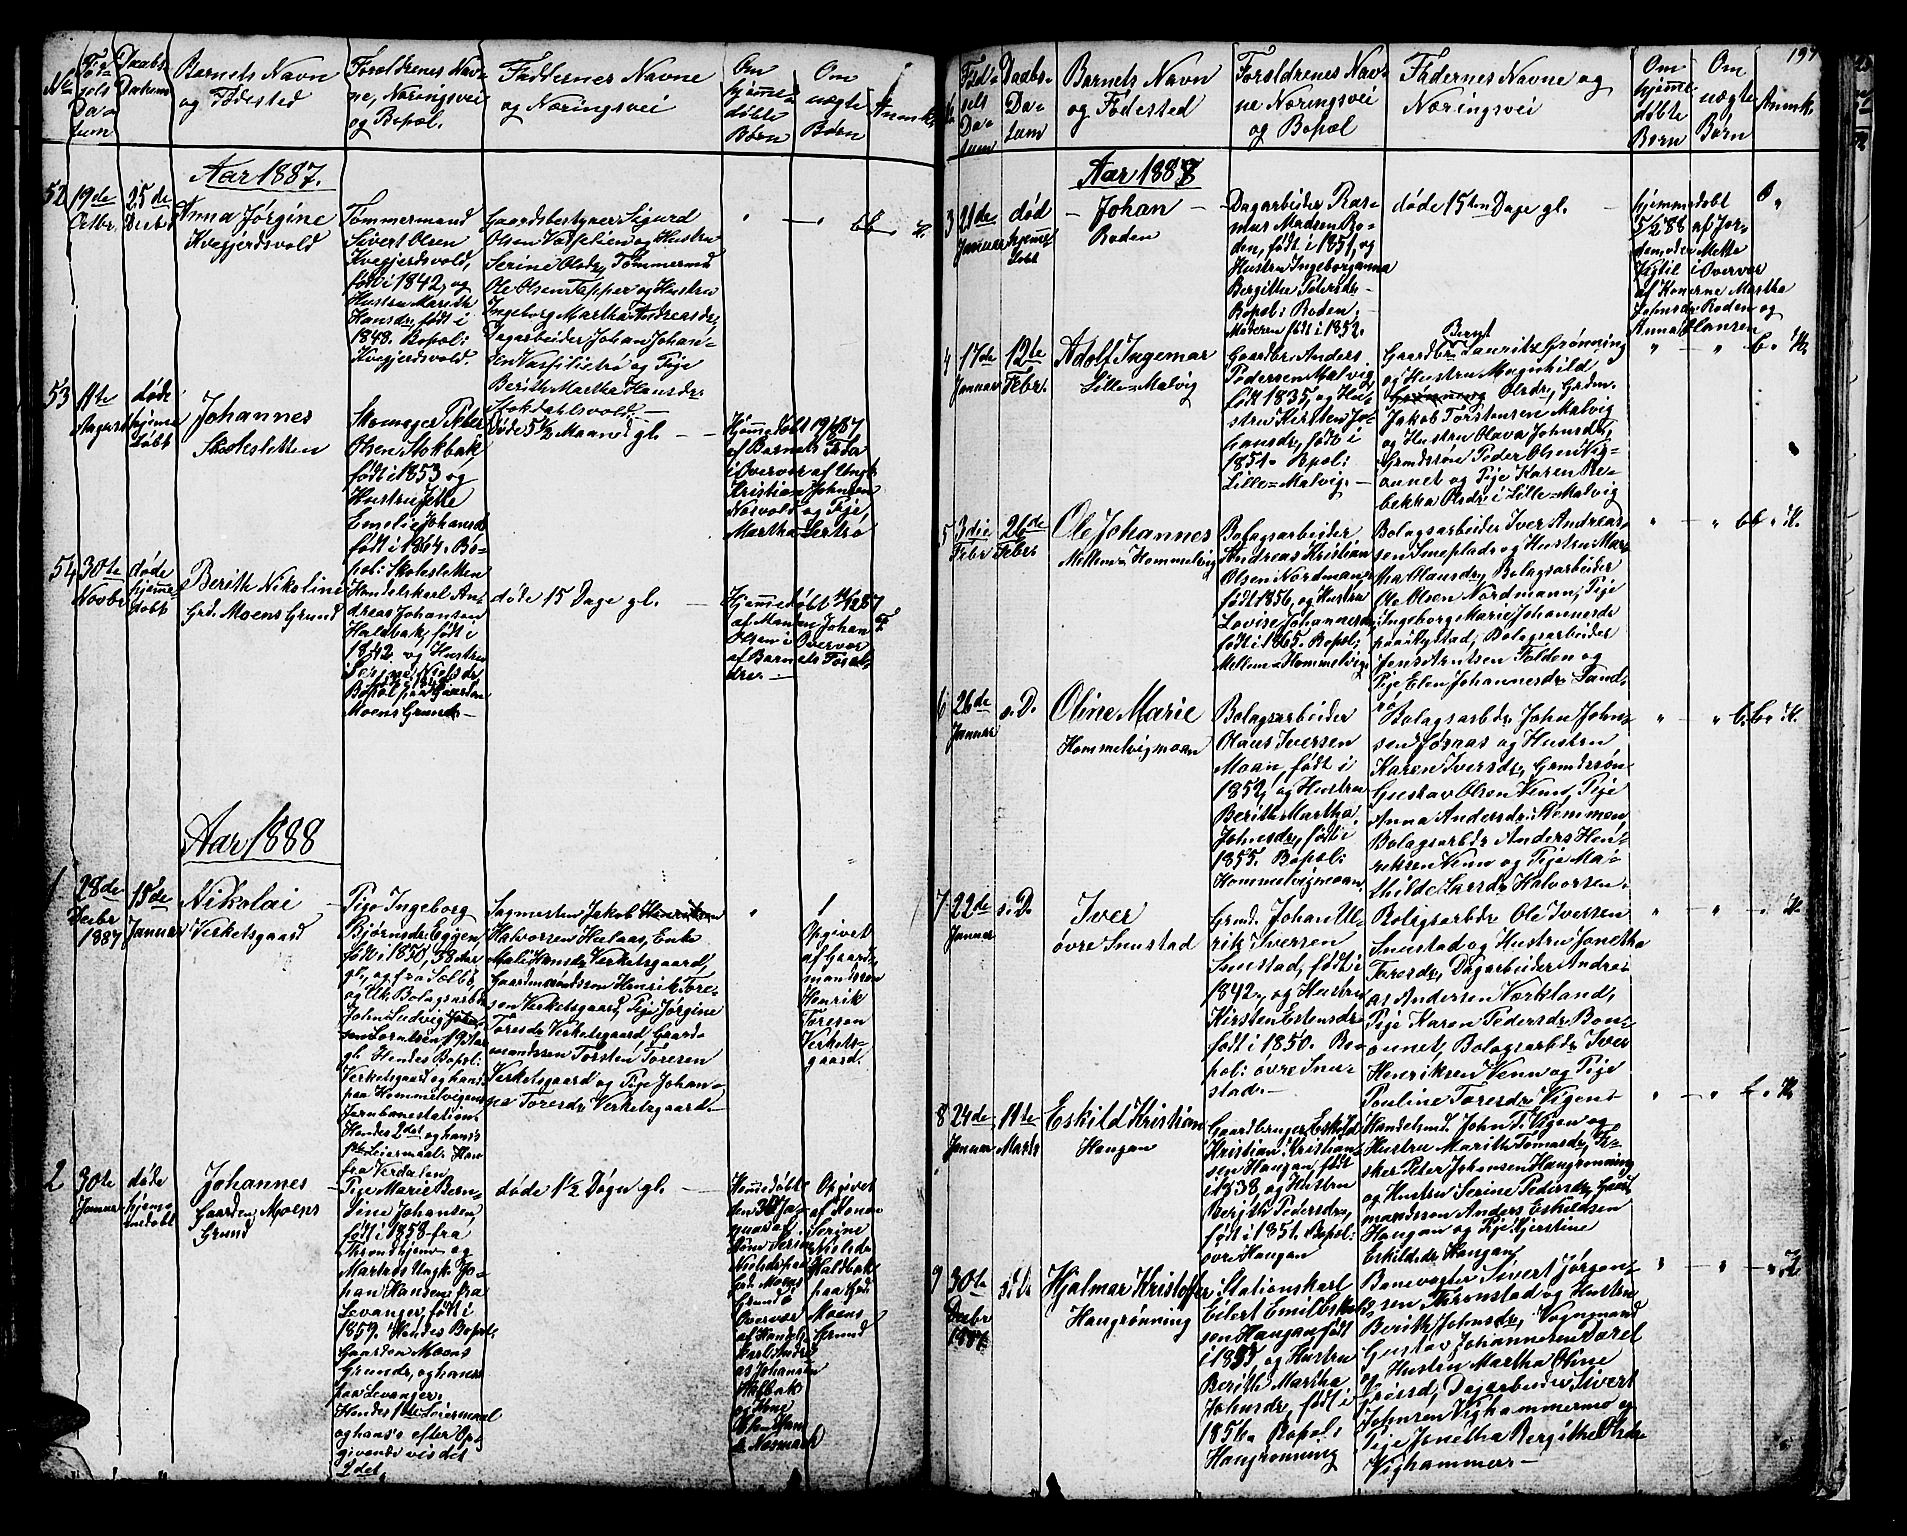 No
Fød-
sels
Da-
tum
Daabs
Datum
Barnets Navn
og Fødested
Forældrenes Nav-
ne, Næringsvei
og Bopæl.
Faddernes Navne
og Næringsvei
Om
hjemme-
døbte
Børn
Om
uægte
Børn
Anmk.
Aar 1887.
52
19de
Octbr
25de
Decbr
Anna Jørgine
Kvegjerdsvold
Tømmermand
Sivert Olsen
Kvegjerdsvold,
født i 1842, og
Hustru Marith
Hansdr, født i
1848. Bopæl:
Kvegjerdsvold.
Gaardsbestyrer Sigurd
Olsen og Hustru
Serine Olsdr, Tømmermd
Ole Olsen Tapper og Hustru
Ingeborg Martha Andreasdr,
Dagarbeider Johan Johan-
sen og Pige
Berith Martha Hansdr
Stokdahlsvold.
53
11te
August
døde
hjemme
døbt
Johannes
Skolesletten
Skomager Peter
Olsen Stokbak,
født i 1853 og
Hustru Jette
Emelie Johansdr
født i 1864. Bo-
pæl: Skolesletten
Døde 5 1/2 Maaned gl.
Hjemmedøbt
af Barnets Fader
i Overvær af Ungk.
Kristian Johnsen
Nesvold og Pige
Martha Lertrø
54
30te
Novbr
døde
hjemme
døbt
Berith Nikoline
Grd. Moens Grund
Handelskarl An-
dreas Johansen
Haldbak, født i
1842 og Hustru
Serine Nielsdr
Bopæl paa Gaarden
Moens Grund.
døde 15 Dage gl.
Hjemmedøbt
af Manden Johan
Olsen i Overvær
af Barnets Foræl-
dre.
Aar 1888
1
28de
Decbr
1887
15de
Januar
Nikolai
Verketsgaard
Pige Ingeborg
Bjørnsdr Eggen,
født i 1850, 38 Aar
gl, og fra Selbo,
og Uk. Bolagsarbdr
John Ludvig
Lorntsen 19 Aar
gl. Hendes Bopæl:
Verketsgaard og hans
paa Hommelvigens
Jernbanestation,
Hendes 2det og hans
1ste Leiermaal. Han
fra Verdalen
Sagmester Jakob
Halvorsen Hulaas, Enke
Mali Hansdr Verketsgaard
Gaardmandssøn Henrik Tore-
sen Verketsgaard, Pige Jørgine
Toresdr Verketsgaard, Gaard-
mandssøn Torsten Toresen
Verketsgaard og Pige Johan-
na Toresdr Verketsgaard.
Opgivet
af Gaard-
mandssøn
Henrik
Toresen
Verkets-
gaard.
2
30te
Januar
døde
hjem-
medøbt
Johannes
Gaarden Moens
Grund
Pige Marie Bern-
tine Johansen,
født i 1858 fra
Throndhjem og
Matros Ungk. Jo-
han Hansen fra
Levanger, født i
1859. Hendes Bopæl
Gaarden Moens
Grund, og hans
paa Levanger.
Hendes 1ste Leiermaal
og hans efter Op-
givende vis det
2det
døde 1 1/2 Døgn gl.
Hjemmedøbt
den 30 Ja-
nuar af
Kone Serine
Nielsdr paa
Gd. Moens
Grund i
Overvær
af Handels-
karl Andre-
as Johansen
Halbak
og Kone
Opgivet
af Konen
Serine
Nielsdr
Haldbak
paa Grd.
Moens
Grund
Fød-
sels
Da-
tum
Daabs-
Da-
tum
Barnets Navn
og Fødested
Forældrenes Nav-
ne Næringsvei
og Bopæl
Fadernes Navne og
Næringsvei
Om
hjemme-
døbte
Børn
Om
uægte
Børn
Anmk.
197
Aar 1888
3
21de
Januar
død
hjemme
døbt
Johan
Roden
Dagarbeider Ras-
mus Madsen Ro-
den, født i 1851, og
Hustru Ingeborganna
Bergitha Petersdr
Bopæl: Roden.
Moderen født i 1852.
døde 15ten Dage gl.
hjemmedøbt
5/2 88 af Jor-
demoder Mette
Vigtil i Overvær
af Konerne Martha
Johnsdr Roden og
Anna Hansen
4
17de
Januar
12te
Febr.
Adolf Ingemar
Lille-Malvig
Gaardbr. Anders
Pedersen Malvig,
født 1835, og Hu-
stru Kirsten Jo-
hansdr, født i
1851. Bopæl:
Lille-Malvig.
Bernt
Gaardbr Lauritz Grønning
og Hustru Magnhild
Olsdr, Grdm.
Jakob Torstensen Malvig
og Hustru Olava Johnsdr,
Grmdssøn Peder Olsen Vig-
aunet og Pige Karen Re-
bekka Olsdr i Lille-Malvig
5
3die
Febr
26de
Febr
Ole Johannes
Mellem Hommelvig
Bolagsarbeider
Andreas Kristian
Olsen Nordmann,
født 1856, og Hustru
Lovise Johannesdr
født i 1865. Bopæl:
Mellem-Hommelvig.
Bolagsarbeider Iver Andreas-
sen Sneplads og Hustru Mar-
tha Olausdr, Bolagsarbeider
Ole Olsen Nordmann, Pige
Ingeborg Marie Johannesdr
paa Rystad, Bolagsarbeider
Jens Arntsen Folden og
Pige Elen Johannesdr Sand-
6
26de
Januar
s. D.
Oline Marie
Hommelvigmoan
Bolagsarbeider
Olaus Iversen
Moan, født i
1852, og Hustru
Berith Martha
Johnsdr, født i
1855. Bopæl:
Hommelvigmoan
Bolagsarbdr John John-
sen Jøsnas og Hustru
Karen Iversdr, Grmdssøn
Gustav Olsen Venn, Pige
Anna Andersdr
Bolagsarbdr Anders Hen-
riksen Venn og Pige Ma-
thilde Larsdr Halvorsen
7
22de
Januar
s. D.
Iver
øvre Snustad
Grmd. Johan Ul-
rik Iversen
Snustad, født i
1842, og Hustru
Kirsten Estensdr
født i 1850. Bo-
pæl: øvre Snu-
stad.
Boligsarbdr Ole Iversen
Snustad og Hustru Jonetha
Toresdr, Dagarbeider Andre-
as Andersen Nærkland,
Pige Karen Pedersdr Bon-
aunet, Bolagsarbdr Iver
Henriksen Venn og Pige
Pauline Toresdr Vigen
8
24de
Januar
11te
Marts
Eskild Kristian
Haugan
Gaardbruger Eskild
Kristian Kristian-
sen Haugan, født
i 1838, og Hustru
Berith Pedersdr,
født i 1851. Bopæl:
øvre Haugan
Handelsmd. John T. Vigen og
Hustru Marith Tomasdr, Fi-
sker Peter Johansen Haugrønning
og Hustru Serine Pedersdr, Gaard-
mandssøn Anders Eskildsen
Haugan og Pige Kjerstine
Eskildsdr Haugan
9
30te
Decbr
1887
s. D.
Hjalmar Kristoffer
Haugrønning
Stationskarl
Eilert Emil Eskild-
sen Haugan født
i 1857 og Hustru
Berith Martha
Johnsdr, født i
1856. Bopæl:
Haugrønning
Banevogter Sivert Jørgen-
sen Trønstad og Hustru
Berith Johnsdr, Vognmand
Gustav Johannesen
og Hustru Martha Oline
Dagarbeider Sivert
Johnsen Vighammermo og
Pige Jonetha Bergitte Olsdr
Vighammer